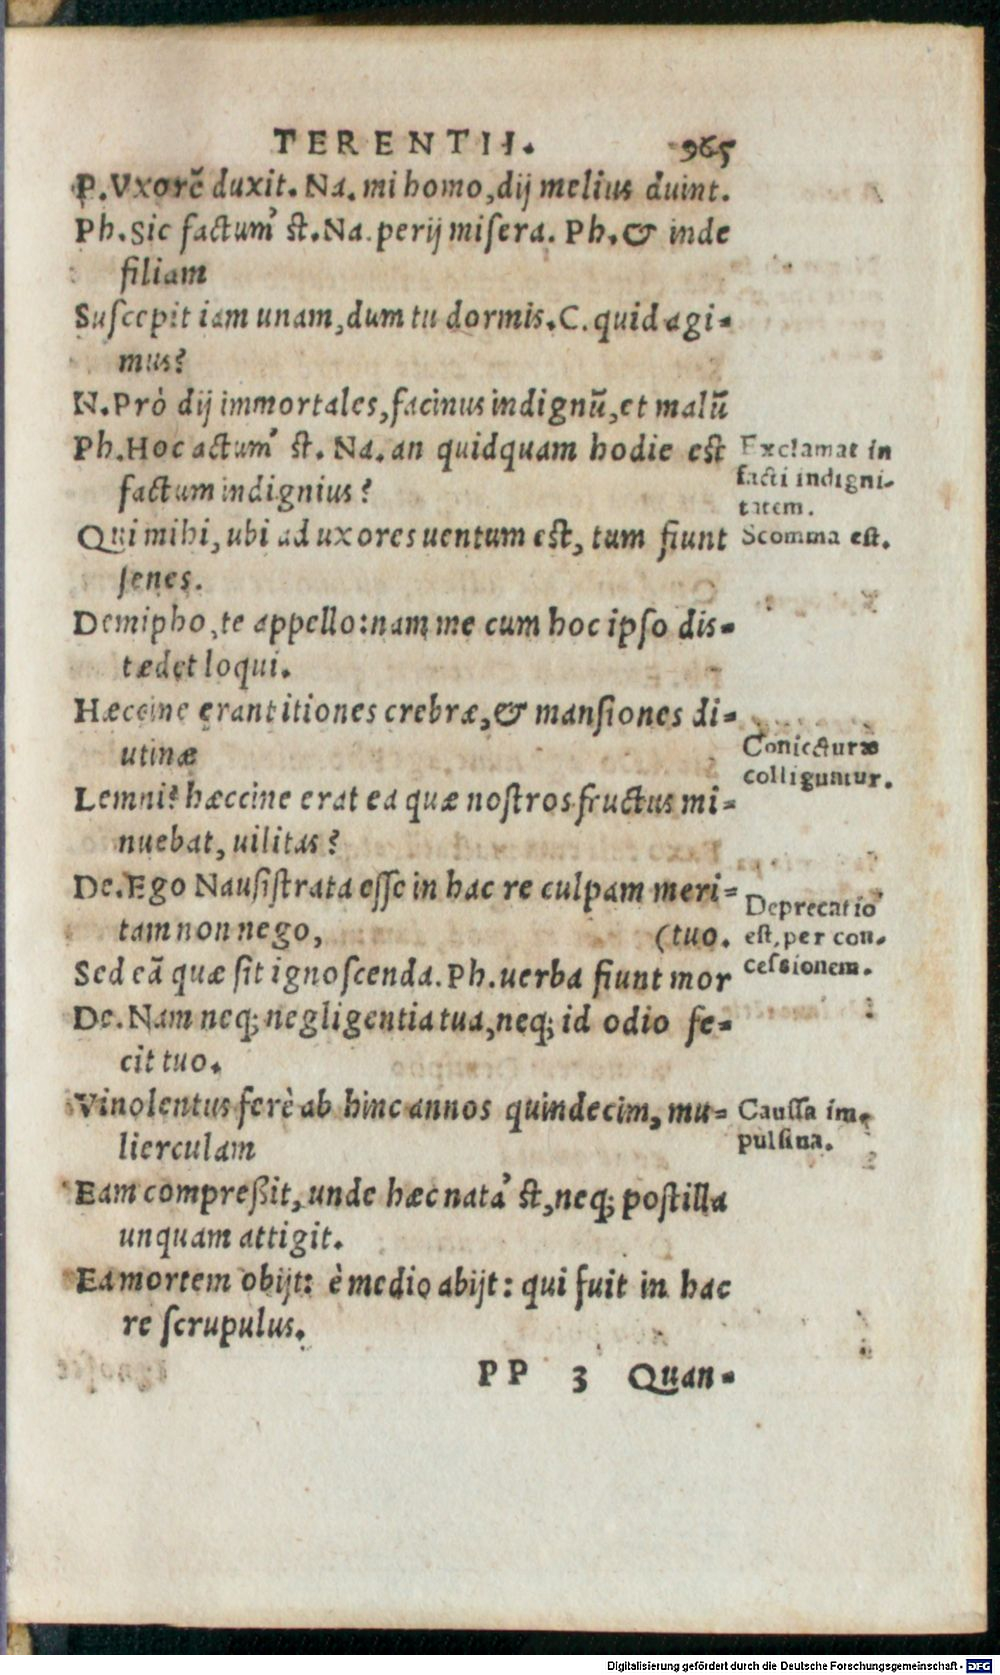 TERENTII. 965
P.Vxorē duxit. Na. mi homo, dij melius duint.
Ph. Sic factum' st. Na. perij misera. Ph. & inde
filiam
Suscepit iam unam, dum tu dormis. C. quid agi-
mus?
N. Prò dij immortales, facinus indignū, et malū
Ph. Hoc actum' st. Na. an quidquam hodie est
factum indignius?
Qui mihi, ubi ad uxores uentum est, tum fiunt
senes.
Demipho, te appello: nam me cum hoc ipso dis-
tædet loqui.
Hæccine erant itiones crebræ, & mansiones di-
utinæ
Lemni? hæccine erat ea quæ nostros fructus mi-
nuebat, uilitas?
De. Ego Nausistrata esse in hac re culpam meri-
tam non nego, (tuo.
Sed eā quæ sit ignoscenda. Ph. uerba fiunt mor
De. Nam neq; negligentia tua, neq; id odio fe-
cit tuo.
Vinolentus ferè ab hinc annos quindecim, mu-
lierculam
Eam compreßit, unde hæc nata' st, neq; postilla
unquam attigit.
Ea mortem obijt: è medio abijt: qui fuit in hac
re scrupulus.
PP 3 Quan-
Exclamat in
facti indigni-
tatem.
Scomma est.
Coniecturæ
colliguntur.
Deprecatio
est, per con-
cessionem.
Caussa im-
pulsiua.
Digitalisierung gefördert durch die Deutsche Forschungsgemeinschaft - DFG